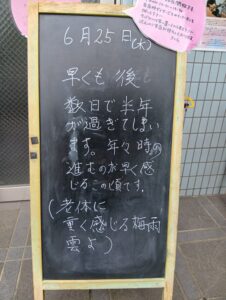 6月25日(木)
早くも 後
数日で半年
が過ぎてしまい
ます。年々時の
進むのが早く感
じるこの頃です。
(老体に
重く感じる梅雨
雲よ)